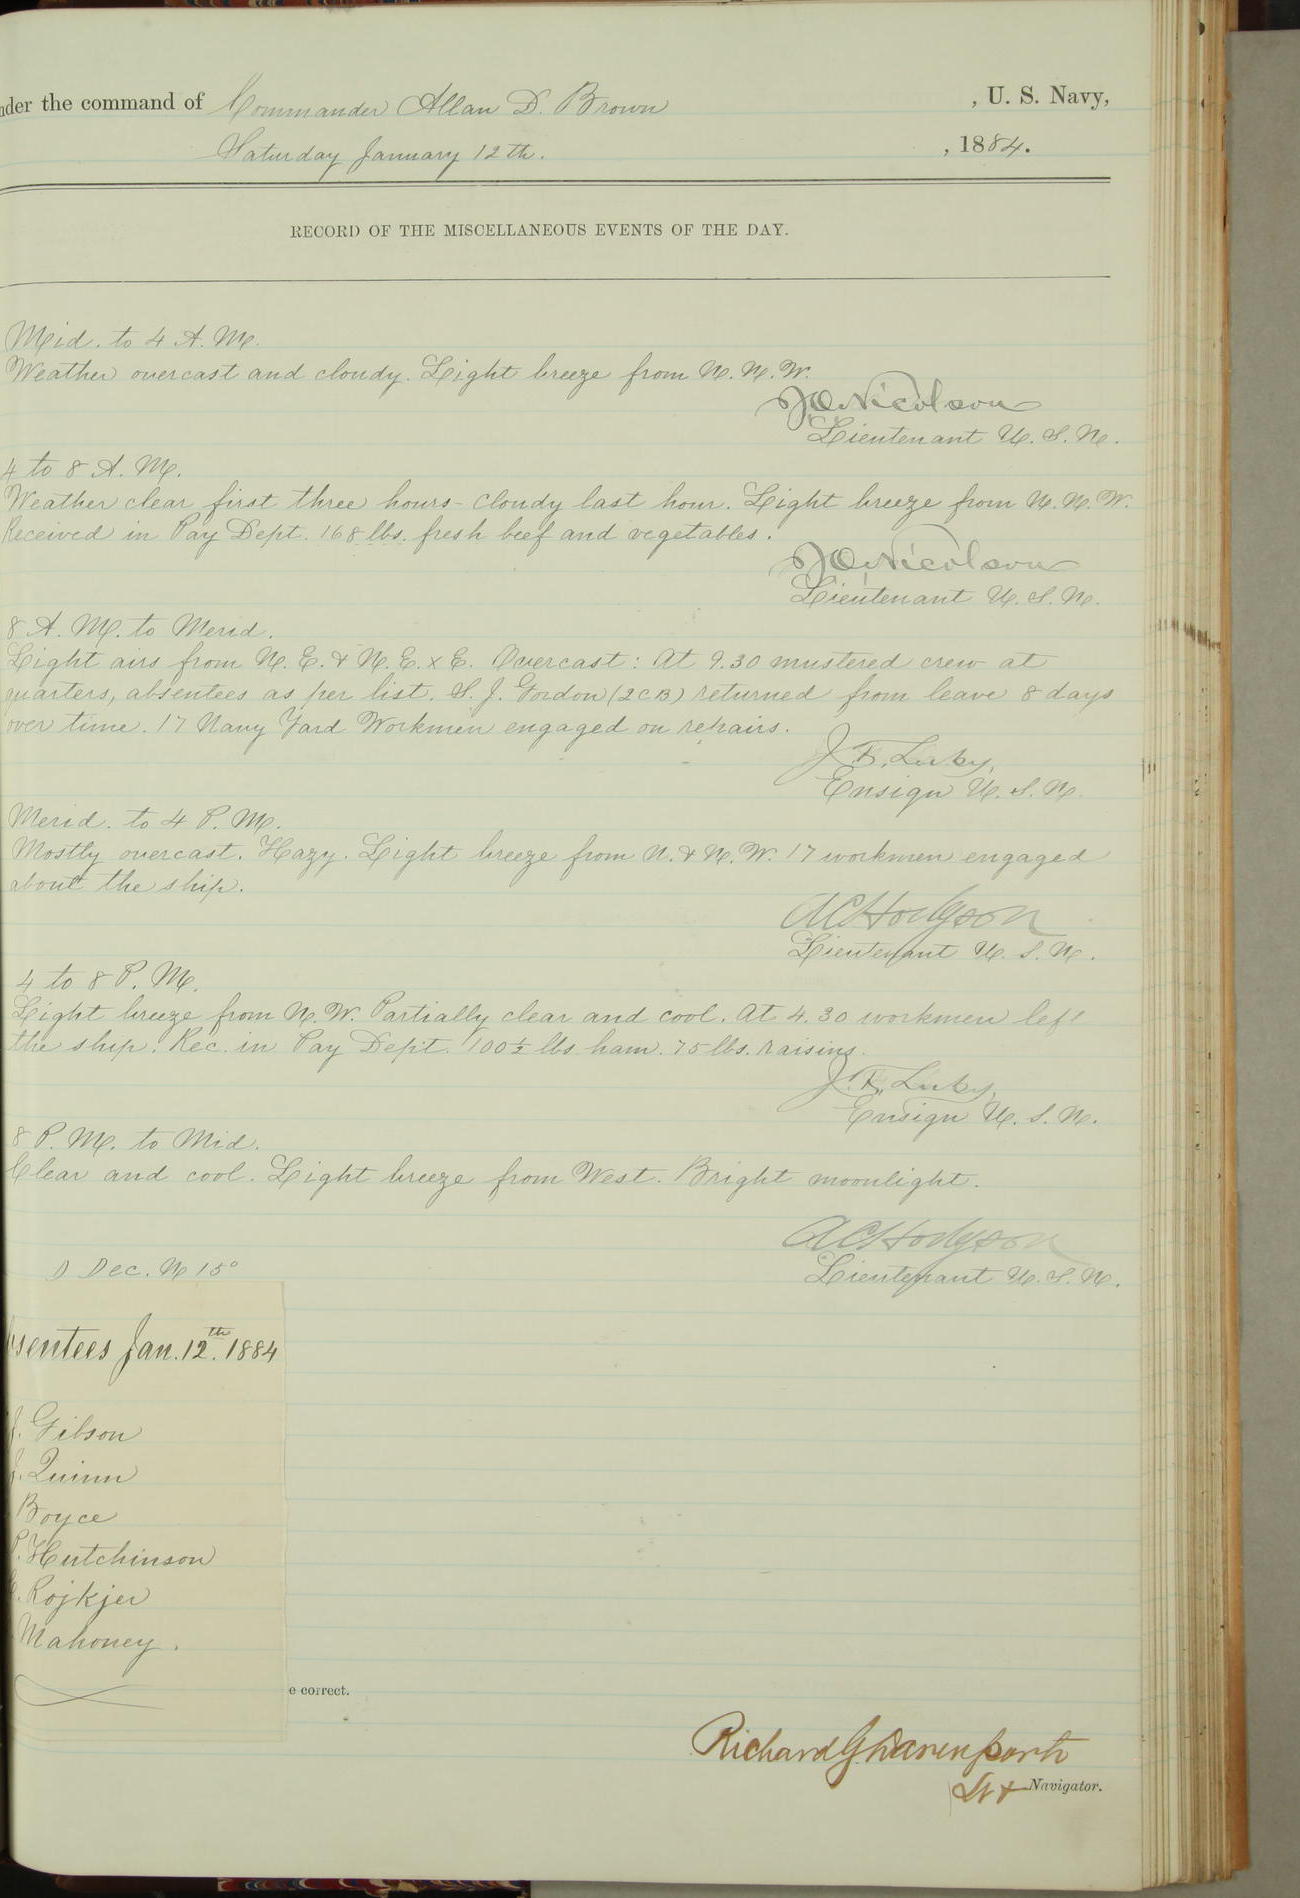 nder the command of Commander Allan D. Brown , U. S. Navy,
Saturday January 12th. , 1884.
RECORD OF THE MISCELLANEOUS EVENTS OF THE DAY.
Mid. to 4 A. M.
Weather overcast and cloudy. Light breeze from N. N. W.
J O Nicolson
Lieutenant U. S. N.
4 to 8 A. M.
Weather clear first three hours - cloudy last hour. Light breeze from N. N. W.
Received in Pay Dept. 168 lbs. fresh beef and vegetables.
J O Nicolson
Lieutenant U. S. N.
8 A. M. to Merid.
Light airs from N. E. & N. E. x E. Overcast: At 9.30 mustered crew at
quarters, absentees as per list. S. J. Gordon (2CB) returned from leave 8 days
over time. 17 Navy Yard Workmen engaged on repairs.
J. F. Luby,
Ensign U. S. N.
Merid. to 4 P. M.
Mostly overcast. Hazy. Light breeze from N. & N. W. 17 workmen engaged
about the ship.
A C Hodgson
Lieutenant U. S. N.
4 to 8 P. M.
Light breeze from N. W. Partially clear and cool. At 4.30 workmen left
the ship. Rec. in Pay Dep't. 100½ lbs ham. 75 lbs. raisins.
J. F. Luby,
Ensign U. S. N.
8 P. M. to Mid.
Clear and cool. Light breeze from West. Bright moonlight.
A C Hodgson
Lieutenant U. S. N.
D Dec. N 15°
sentees Jan. 12th. 1884
J. Gibson
J. Quinn
Boyce
P. Hutchinson
Rojkjer
Mahoney.
e correct.
Richard G Davenport
Lt & Navigator.